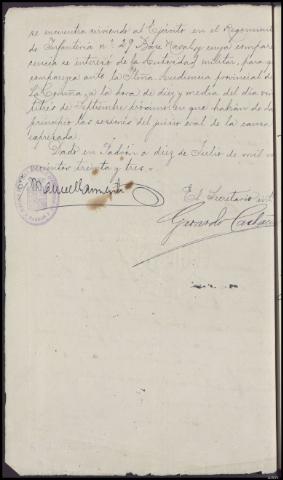 se encuentra sirviendo al Ejército en el Regimiento
de Infantería n.º 29 Base Naval, y cuya compare
cencia se interesó de la Autoridad militar, para q
comparezca ante la Iltma. Audiencia provincial de
La Coruña, a la hora de diez y media del día
tres de Septiembre próximo en que habrán de da
principio las sesiones del juicio oral de la causa
expresada.
Dado en Padrón a diez de Julio de mil
cientos treinta y tres.-
Manuel
El Secretario
Gerardo